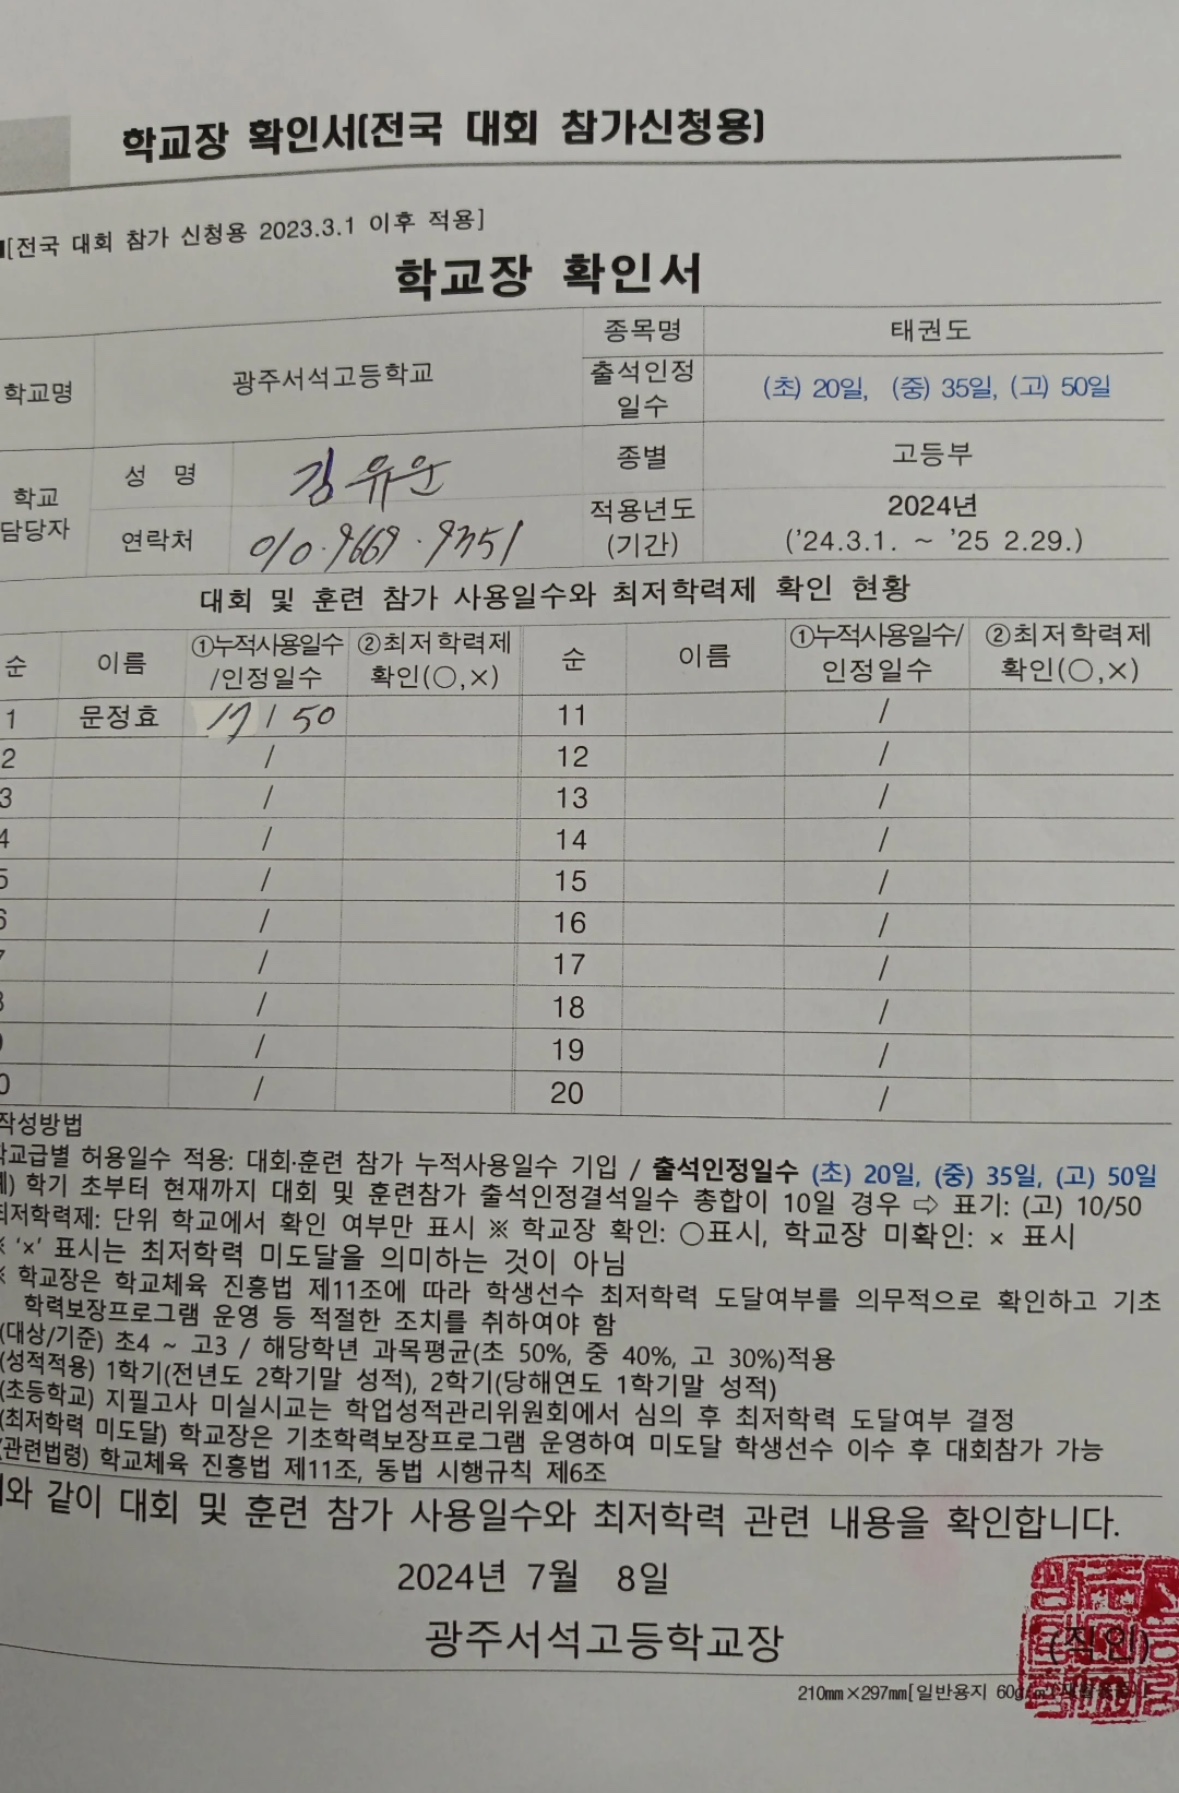 학교장 확인서(전국 대회 참가신청용)
[전국 대회 참가 신청용 2023.3.1 이후 적용]
학교장 확인서
학교명 광주서석고등학교 종목명 태권도
출석인정 일수 (초) 20일, (중) 35일, (고) 50일
학교 담당자 성 명 김유운 종별 고등부
연락처 010·9669·9351 적용년도 (기간) 2024년 ('24.3.1. ~ '25 2.29.)
대회 및 훈련 참가 사용일수와 최저학력제 확인 현황
순 이름 ①누적사용일수 /인정일수 ②최저학력제 확인(○,×) 순 이름 ①누적사용일수/ 인정일수 ②최저학력제 확인(○,×)
1 문정효 17 / 50 11 /
2 / 12 /
3 / 13 /
4 / 14 /
5 / 15 /
6 / 16 /
/ 17 /
/ 18 /
/ 19 /
0 / 20 /
작성방법
학교급별 허용일수 적용: 대회·훈련 참가 누적사용일수 기입 / 출석인정일수 (초) 20일, (중) 35일, (고) 50일
) 학기 초부터 현재까지 대회 및 훈련참가 출석인정결석일수 총합이 10일 경우 ⇨ 표기: (고) 10/50
최저학력제: 단위 학교에서 확인 여부만 표시 ※ 학교장 확인: ○표시, 학교장 미확인: × 표시
※ '×' 표시는 최저학력 미도달을 의미하는 것이 아님
※ 학교장은 학교체육 진흥법 제11조에 따라 학생선수 최저학력 도달여부를 의무적으로 확인하고 기초
학력보장프로그램 운영 등 적절한 조치를 취하여야 함
(대상/기준) 초4 ~ 고3 / 해당학년 과목평균(초 50%, 중 40%, 고 30%)적용
(성적적용) 1학기(전년도 2학기말 성적), 2학기(당해연도 1학기말 성적)
(초등학교) 지필고사 미실시교는 학업성적관리위원회에서 심의 후 최저학력 도달여부 결정
(최저학력 미도달) 학교장은 기초학력보장프로그램 운영하여 미도달 학생선수 이수 후 대회참가 가능
(관련법령) 학교체육 진흥법 제11조, 동법 시행규칙 제6조
위와 같이 대회 및 훈련 참가 사용일수와 최저학력 관련 내용을 확인합니다.
2024년 7월 8일
광주서석고등학교장 (직인)
210㎜×297㎜[일반용지 60g/㎡